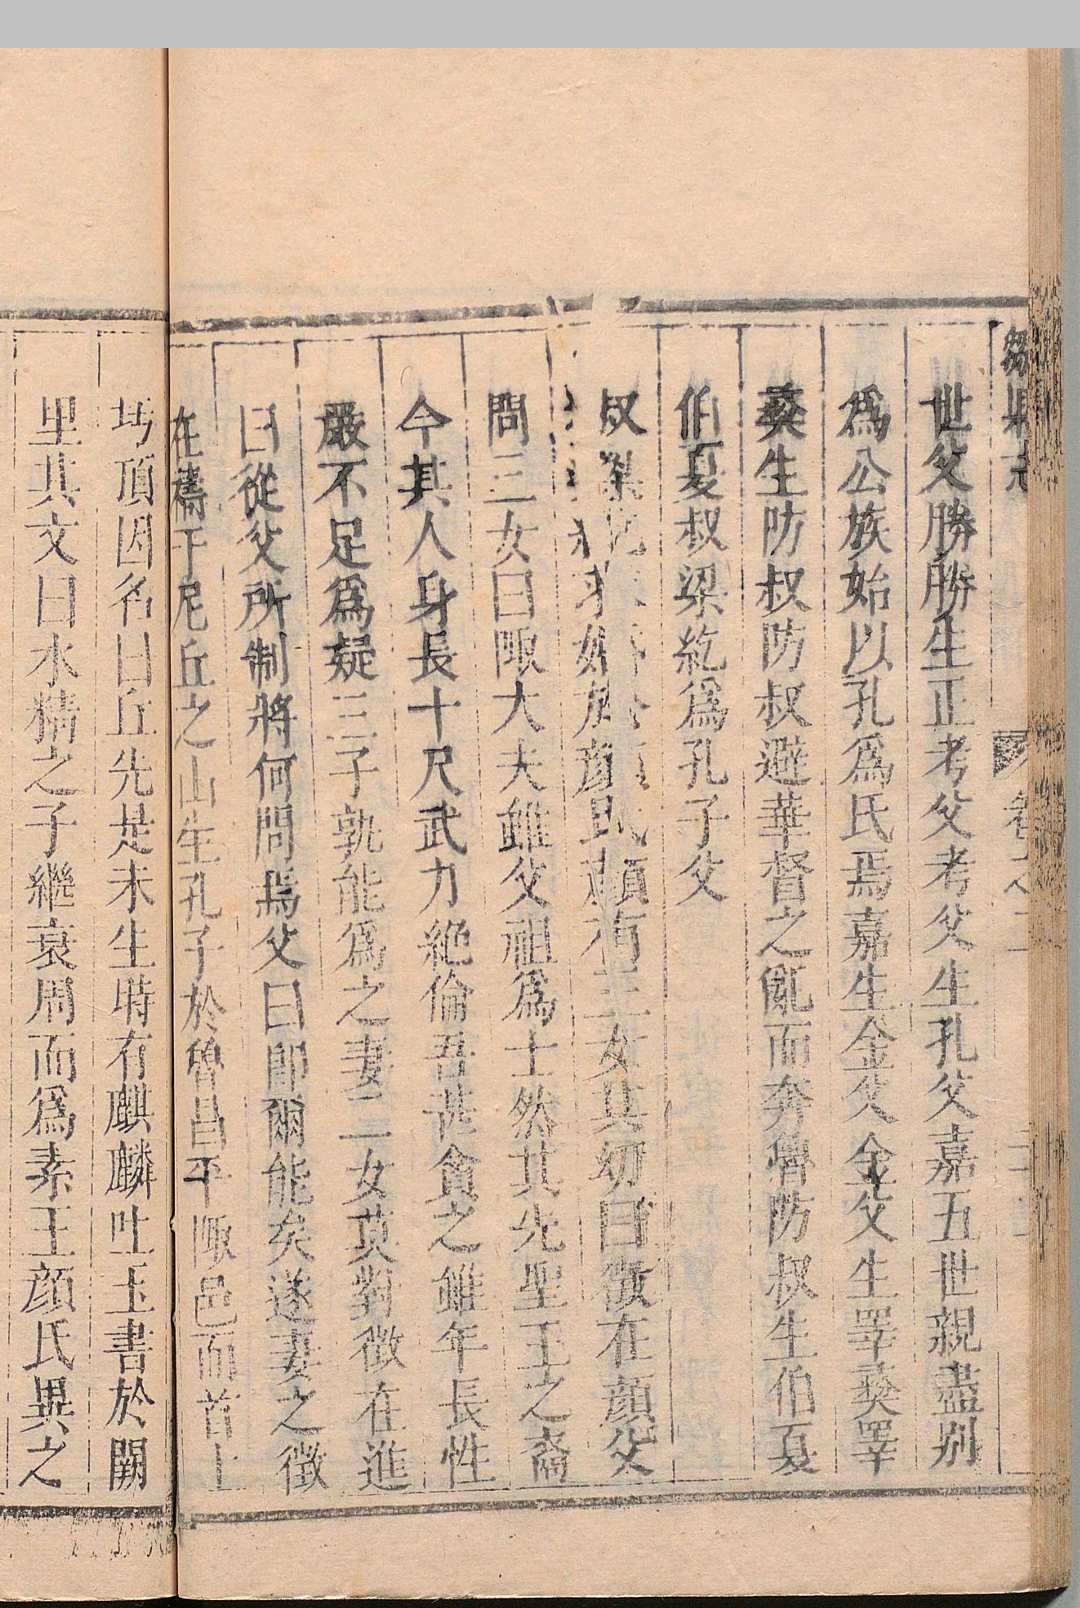 鄒縣志 卷之二
世父勝勝生正考父考父生孔父嘉五世親盡别
爲公族始以孔爲氏焉嘉生金父金父生睪夷睪
夷生防叔防叔避華督之亂而奔魯防叔生伯夏
伯夏叔梁紇爲孔子父
叔梁紇求婚於顏氏顏有三女其幼曰徵在顏父
問三女曰陬大夫雖父祖爲士然其先聖王之裔
今其人身長十尺武力絶倫吾甚貪之雖年長性
嚴不足爲疑三子孰能爲之妻二女莫對徵在進
曰從父所制將何問焉父曰卽爾能矣遂妻之徵
在禱于尼丘之山生孔子於魯昌平陬邑而首上
圬頂因名曰丘先是未生時有麒麟吐玉書於闕
里其文曰水精之子繼衰周而爲素王顏氏異之